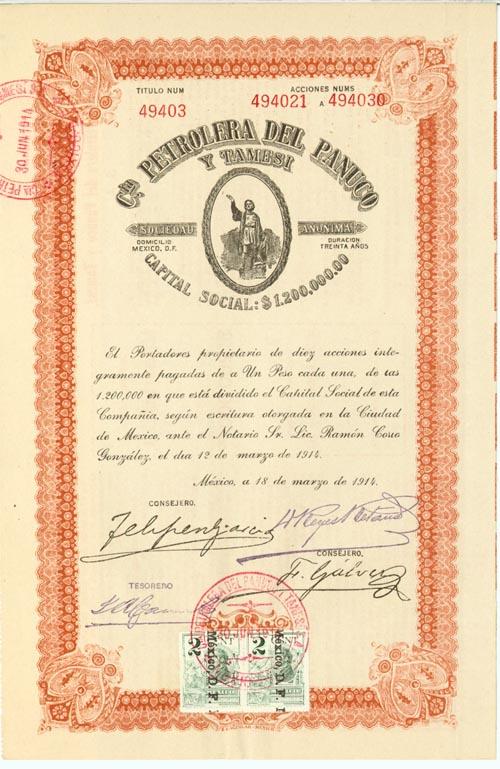 TITULO NUM
49403
ACCIONES NUMS
494021 A 494030
30 JUN 1914
Cía PETROLERA DEL PANUCO
Y TAMESI
SOCIEDAD ANONIMA
DOMICILIO
MEXICO, D.F.
DURACION
TREINTA AÑOS
CAPITAL SOCIAL: $1.200,000.00
El Portadores propietario de diez acciones inte-
gramente pagadas de a Un Peso cada una, de las
1.200,000 en que está dividido el Capital Social de esta
Compañia, según escritura otorgada en la Ciudad
de Mexico, ante el Notario Sr. Lic. Ramón Cosio
González, el dia 12 de marzo de 1914.
México, a 18 de marzo de 1914.
CONSEJERO.
CONSEJERO.
F. Gálvez
TESORERO
2 CENT
México D. F. 1
2 CENT
México D. F. 1